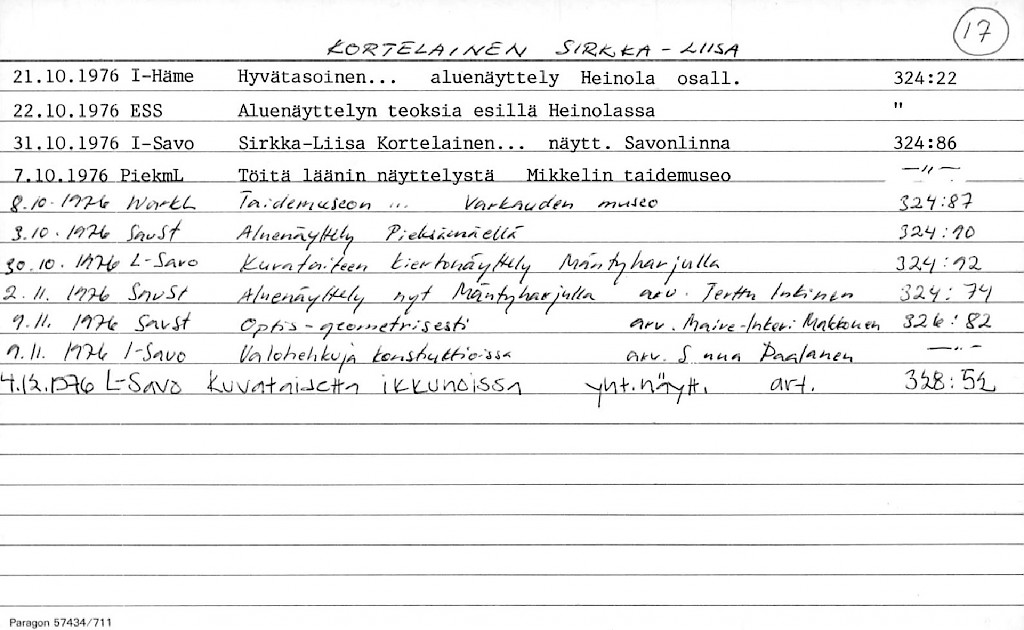 17
KORTELAINEN SIRKKA-LIISA
21.10.1976 I-Häme Hyvätasoinen... aluenäyttely Heinola osall. 324:22
22.10.1976 ESS Aluenäyttelyn teoksia esillä Heinolassa "
31.10.1976 I-Savo Sirkka-Liisa Kortelainen... näytt. Savonlinna 324:86
7.10.1976 PiekmL Töitä läänin näyttelystä Mikkelin taidemuseo —"—
8.10.1976 WarkL Taidemuseon ... Varkauden museo 324:87
3.10.1976 SavSt Aluenäyttely Pieksämäellä 324:90
30.10.1976 L-Savo Kuvataiteen kiertonäyttely Mäntyharjulla 324:92
2.11.1976 SavSt Aluenäyttely nyt Mäntyharjulla arv. Terttu Inkinen 324:74
9.11.1976 SavSt Optis-geometrisesti arv. Maire-Inkeri Makkonen 326:82
9.11.1976 I-Savo Valohehkuja konstruktioissa arv. Paalanen —"—
4.12.1976 L-Savo Kuvataidetta ikkunoissa yht.näytt. art. 328:52
Paragon 57434/711